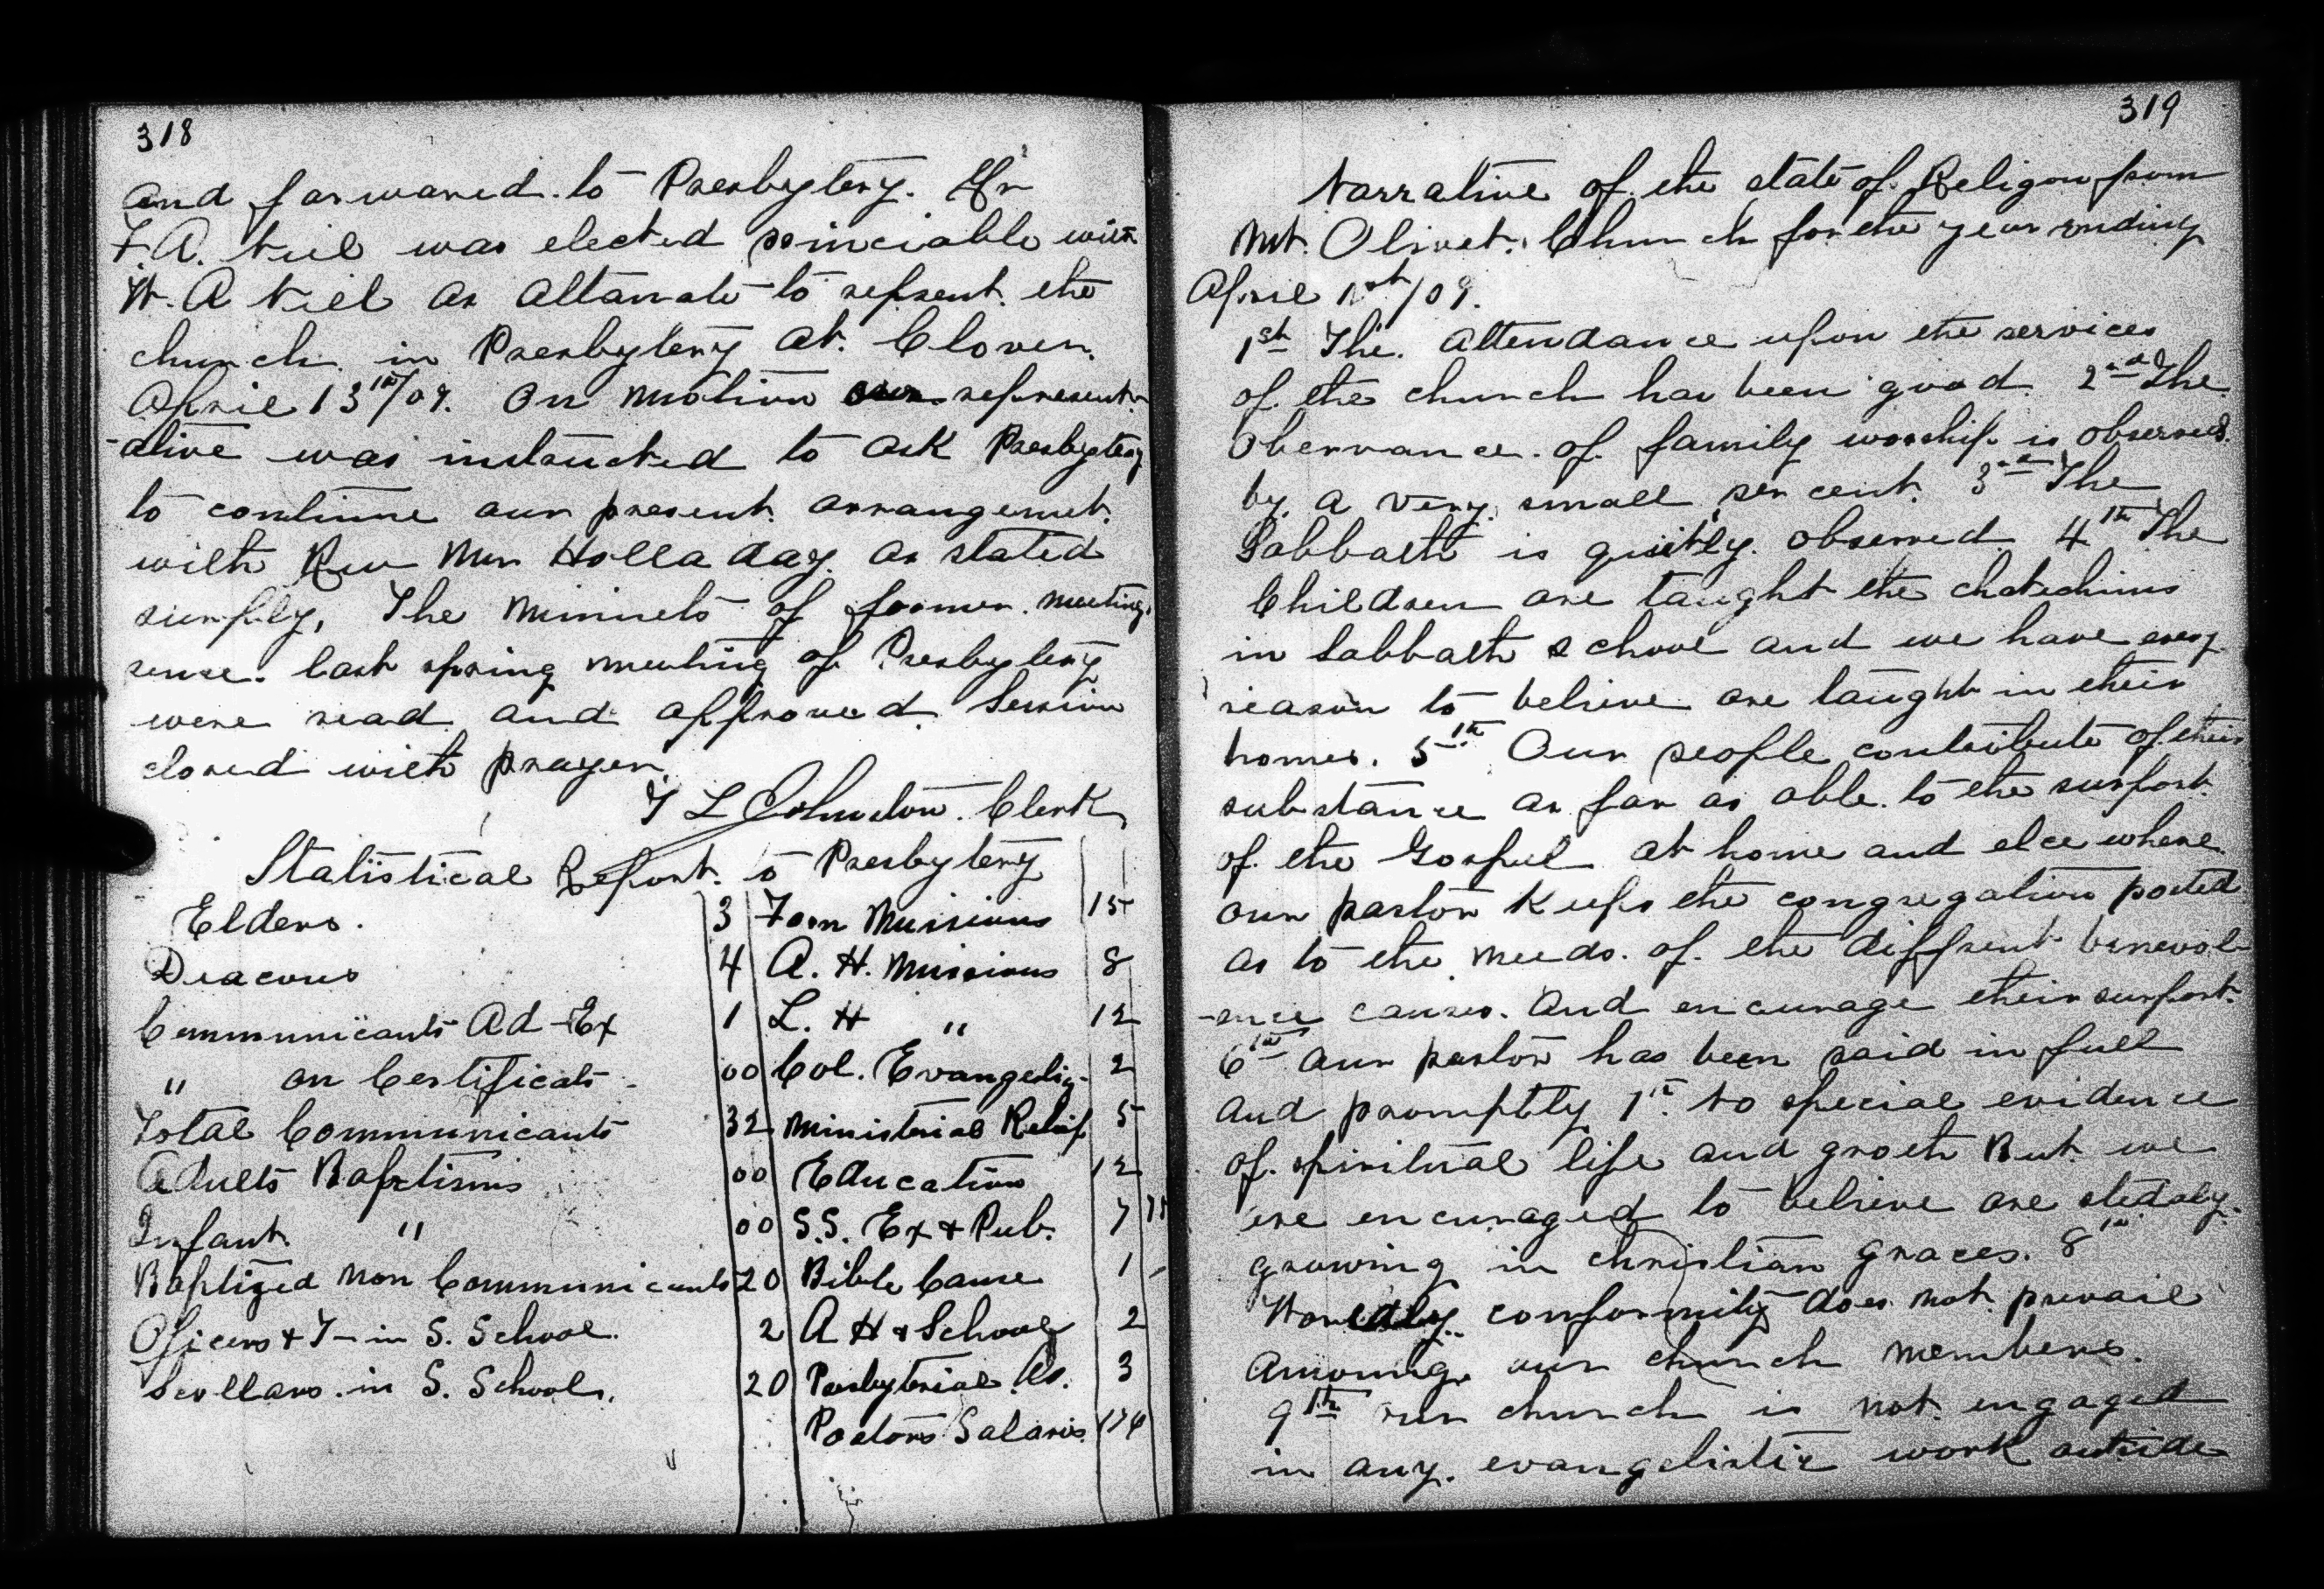 318
and farwared to Presbytery. Mr
F A. Niel was elected princiable with
W. A Niel as altanate to repsent the
church in Presbytery at Clover.
April 13th/09. On motion our represent-
-ative was instructed to ask Presbytery
to continue our present arrangemet
with Rev Mr Holladay as stated
surpply, The minuets of former meetings
sence last spring meeting of Presbytery
were read and approved Session
closed with prayer
T L Johnston. Clerk
Statistical Report to Presbytery
Elders. 3 Forn Missions 15
Deacons 4 A. H. Missions 8
Communicants Ad - Ex 1 L. H " 12
" on Certificate - 00 Col. Evangelis- 2
Total Communicants 32 Ministerial Relief 5
Adults Baptisms 00 Education 12
Infant. " 00 S.S. Ex + Pub. 7
Baptized Non Communicants 20 Bible Cause 1 -
Oficers + T- in S. School. 2 A H + School 2
Scollars in S. School. 20 Presbyterial 3
Pastors Salaris
319
Narrative of the state of Religon from
Mt. Olivet. Church for the year ending
April 1st/09.
1st The attendance upon the services
of the church has been good 2nd The
obervance of family worship is observed
by a very small per cent. 3rd The
Sabbath is quitly observed 4th The
Children are taught the chatechims
in Sabbath School and we have every
reason to believe are taught in their
homes. 5th Our people contribute of their
substance as far as able to the surport
of the Gospel at home and elce where
our pastor keeps the congregation posted
as to the needs of the diffrent benevol-
-ence causes. And encurage their surport.
6th our pastor has been paid in full
and promptly 7th No special evidence
of spiritual life and groth But we
are encuraged to believe are stedaly
growing in christian graces. 8th
Worldly conformity does not prevail
amoung our church members.
9th our church is not engaged
in any evangelistic work outside